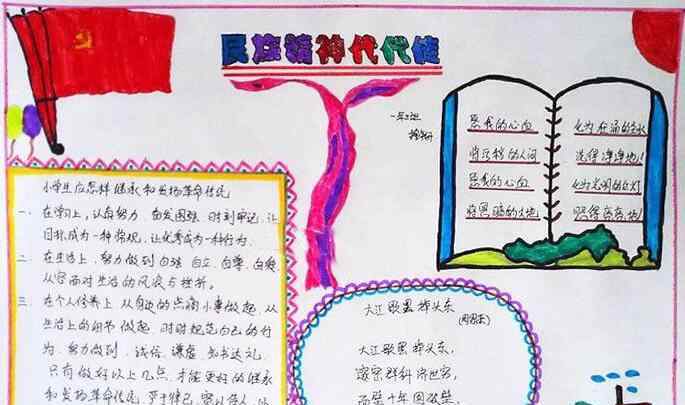 民族精神代代传
一年2班
小学生应怎样继承和发扬革命传统
一、在学习上，认真努力，奋发图强，时刻牢记，让
目标成为一种常规，让优秀成为一种行为。
二、在生活上，努力做到自强、自立、自尊、自爱，
从容面对生活的风浪与挫折。
三、在个人修养上，从身边的点滴小事做起，从
生活上的细节做起，时时规范自己的行
为，努力做到，诚信、谦虚、知书达礼，
只有做好以上几点，才能更好的继承
和发扬革命传统，严于律己，宽以待人
愿我的心血 化为
将 的人间 洗得净净地！
愿我的心血 化为光明的红灯
将黑暗的大地 照得亮亮地！
大江歌罢掉头东
(周恩来)
大江歌罢掉头东，
邃密群科济世穷，
面壁十年图破壁，